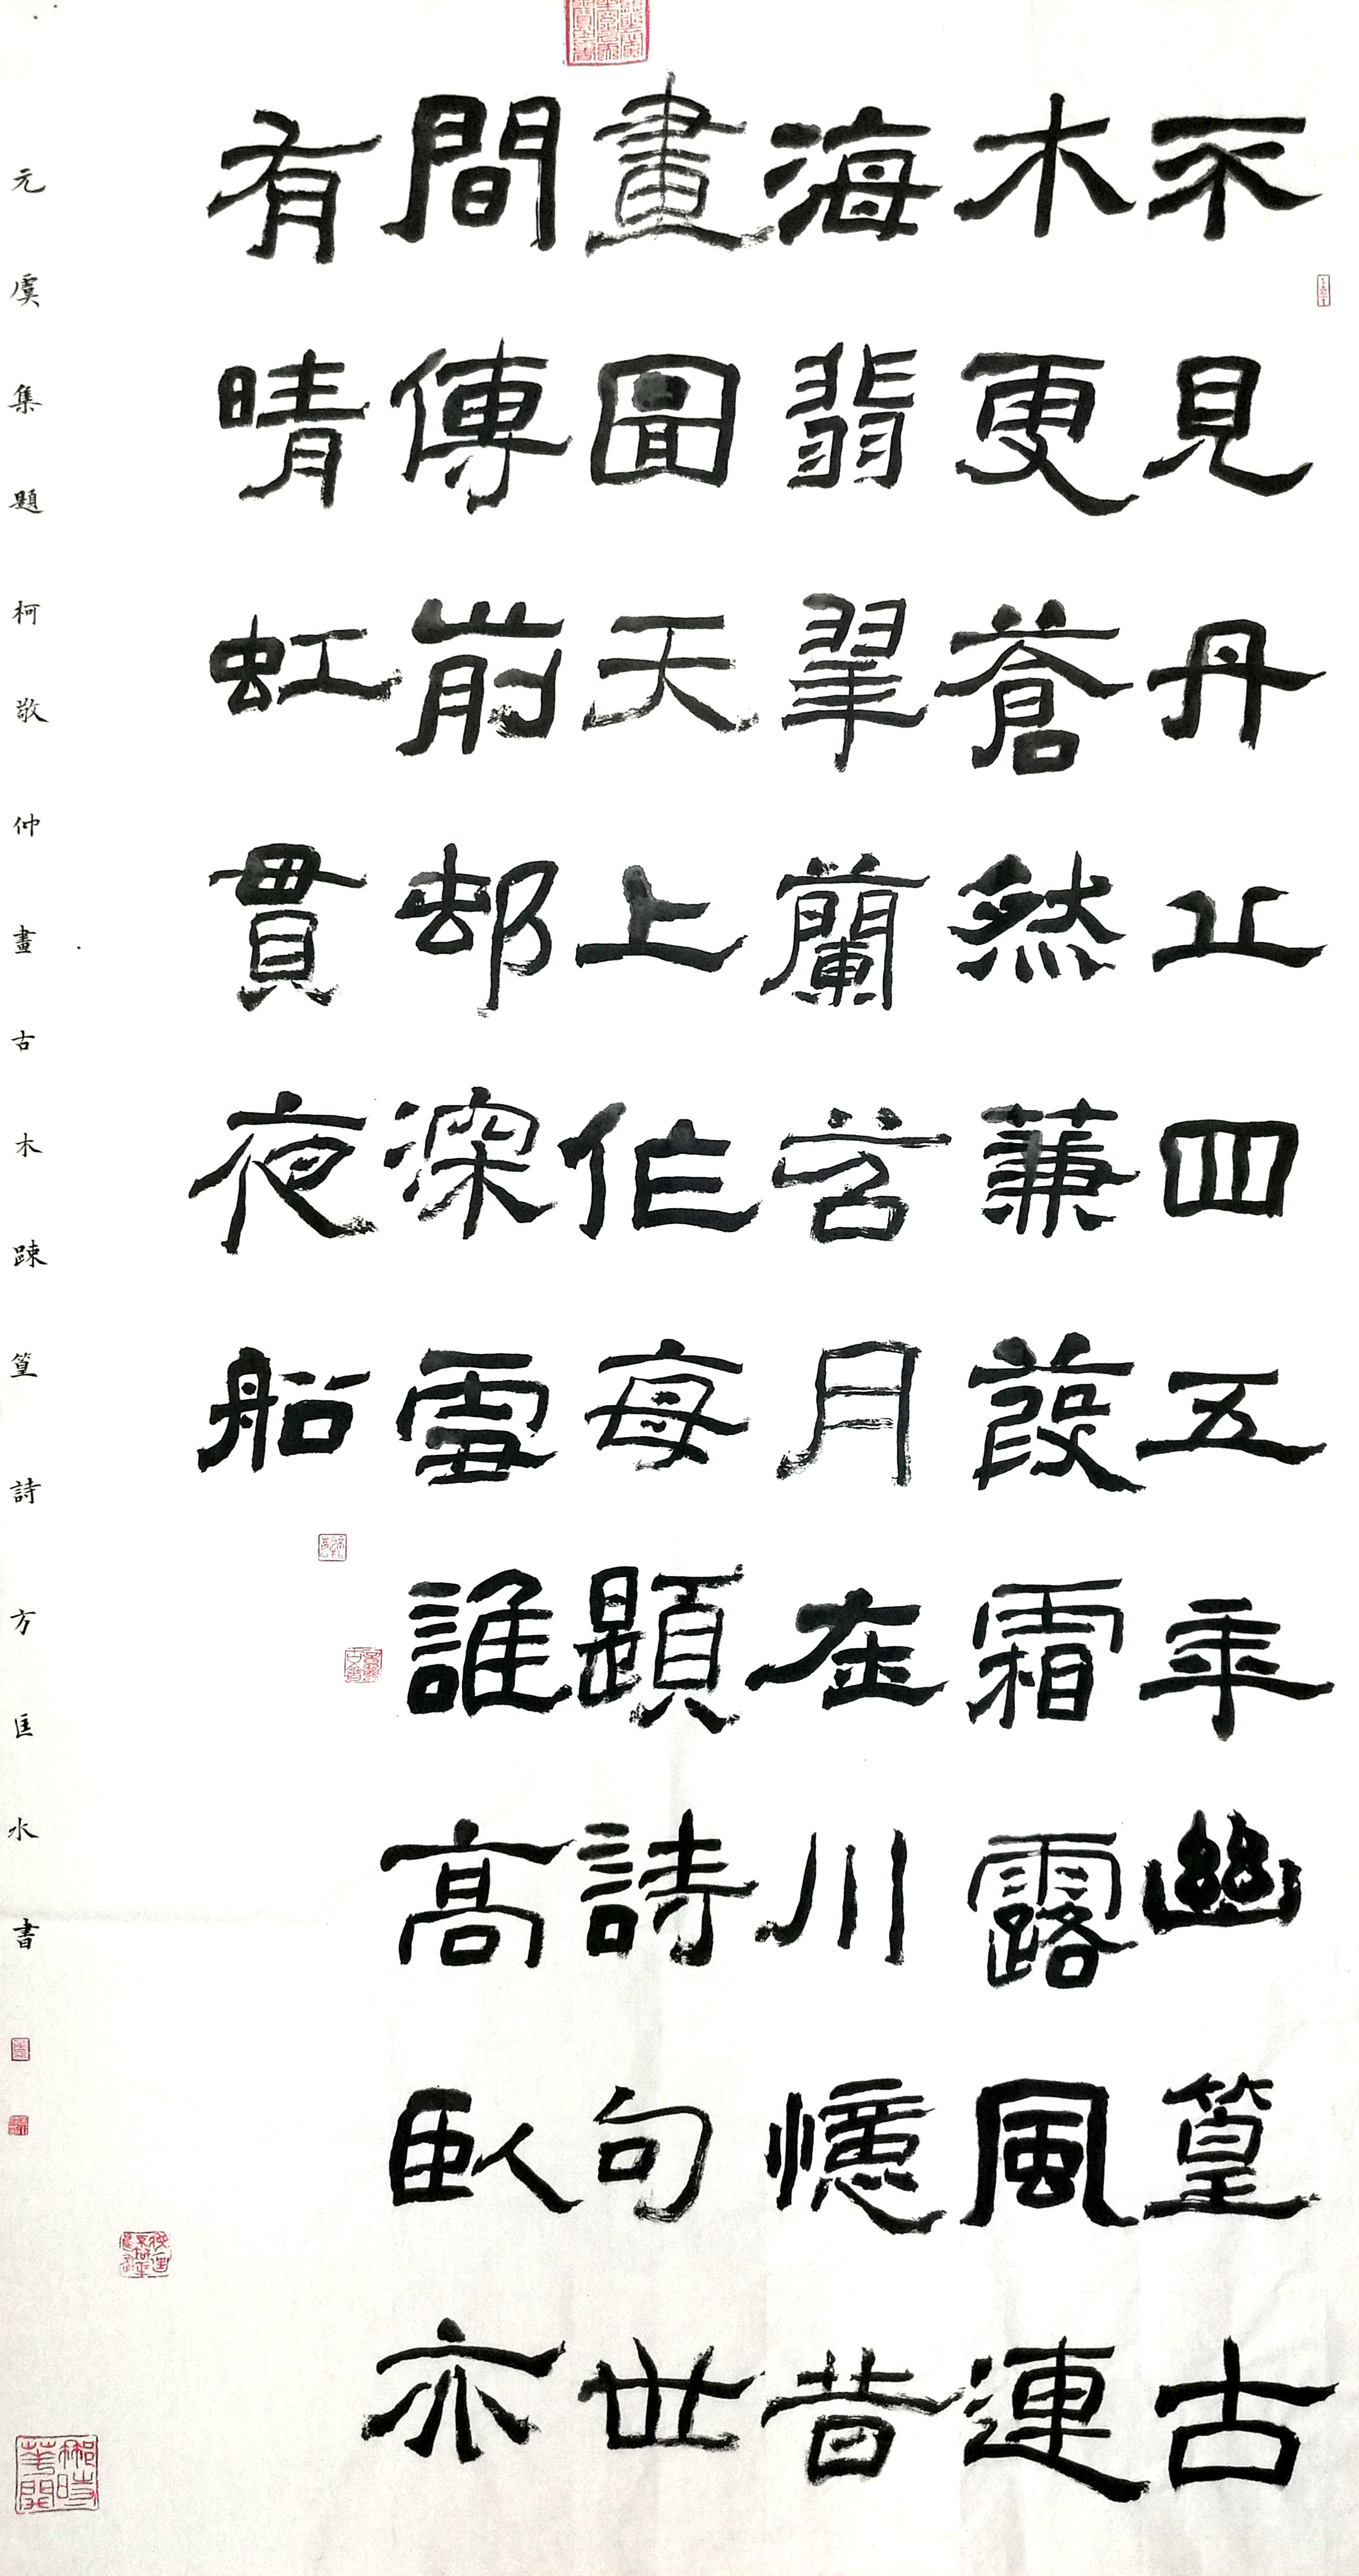 不見丹丘四五年幽篁古
木更蒼然蒹葭霜露風連
海翡翠蘭苕月在川憶昔
畫圖天上作每題詩句世
間傳前邨深雪誰高臥亦
有晴虹貫夜船
元虞集題柯敬仲畫古木踈篁詩方匡水書